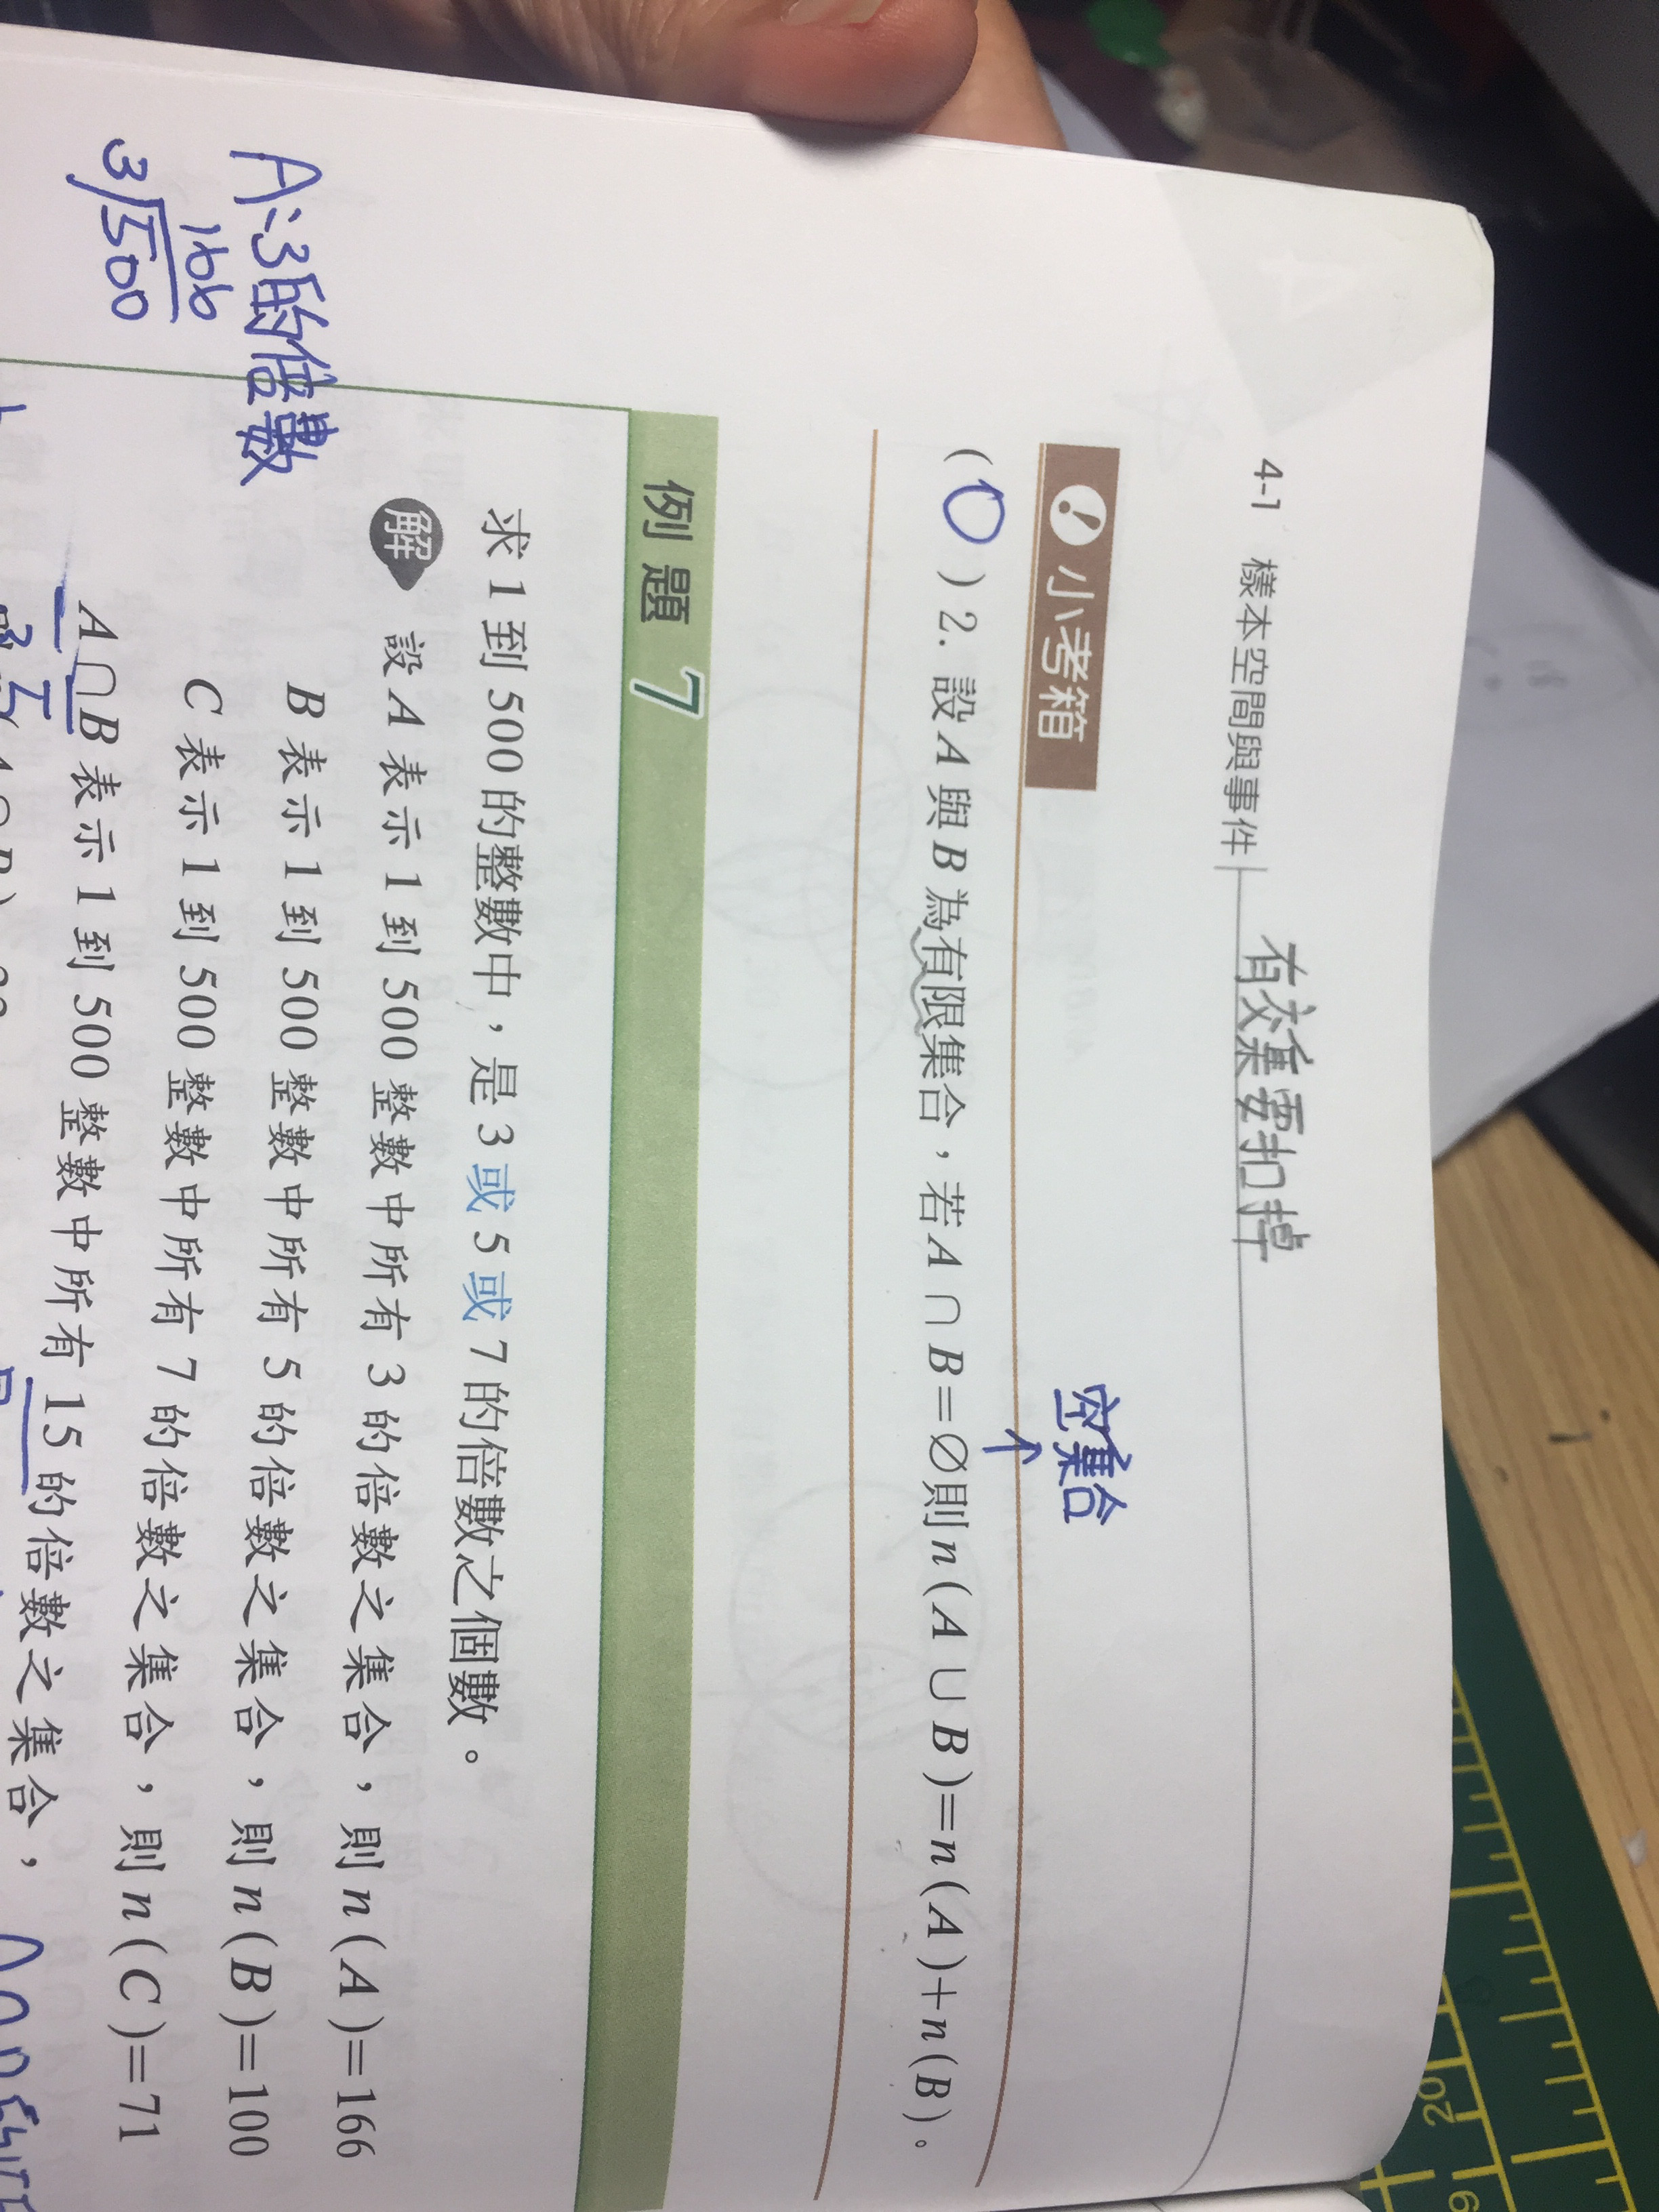 4-1 樣本空間與事件
有交集要扣掉
小考箱
空集合
↑
(○) 2. 設 A 與 B 為有限集合，若 A ∩ B=∅則 n(A ∪ B)=n(A)+n(B)。
例題 7
求 1 到 500 的整數中，是 3 或 5 或 7 的倍數之個數。
解 設 A 表示 1 到 500 整數中所有 3 的倍數之集合，則 n(A)=166
B 表示 1 到 500 整數中所有 5 的倍數之集合，則 n(B)=100
C 表示 1 到 500 整數中所有 7 的倍數之集合，則 n(C)=71
A∩B 表示 1 到 500 整數中所有 15 的倍數之集合，
A:3的倍數
166
3)500
20
19